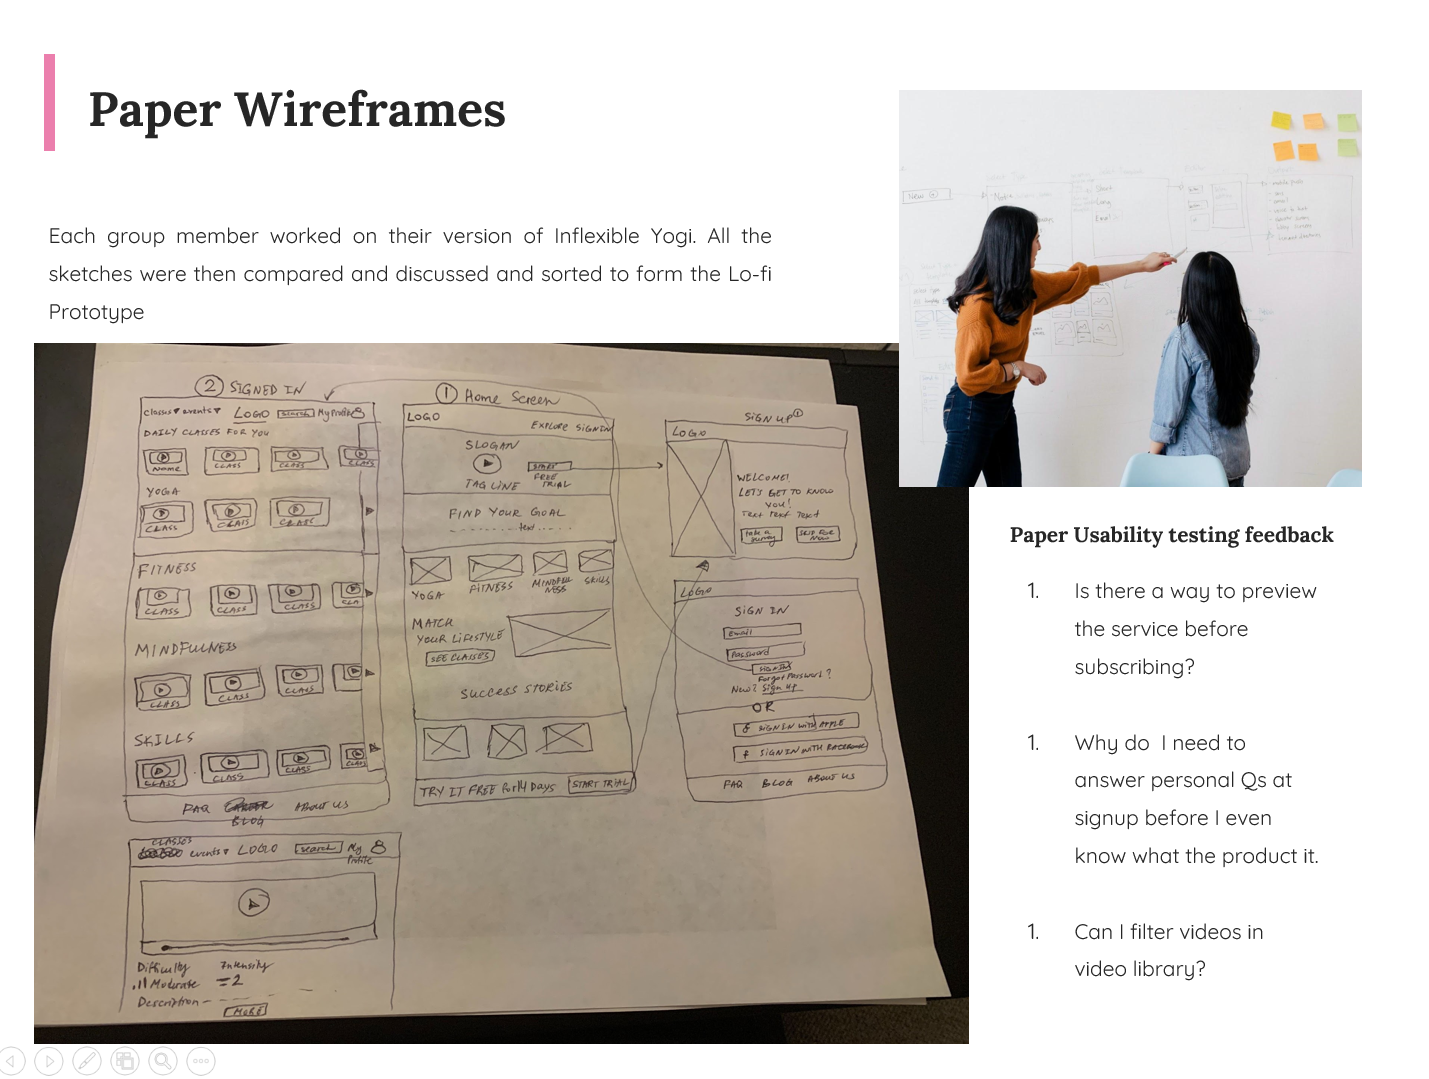 Paper Wireframes
Each group member worked on their version of Inflexible Yogi. All the
sketches were then compared and discussed and sorted to form the Lo-fi
Prototype
② SIGNED IN
classes▼ events▼ LOGO search My Profile
DAILY CLASSES FOR YOU
NAME CLASS CLASS CLASS
YOGA
CLASS CLASS CLASS
FITNESS
CLASS CLASS CLASS CLA
MINDFULNESS
CLASS CLASS CLASS
SKILLS
CLASS CLASS CLASS CLAS
FAQ ABOUT US
BLOG
CLASSES
events▼ LOGO search My
Profile
Difficulty Intensity
Moderate 2
Description
MORE
① Home Screen
LOGO
EXPLORE SIGN IN
SLOGAN
START
FREE
TRIAL
TAG LINE
FIND YOUR GOAL
text
YOGA FITNESS MINDFUL
NESS SKILLS
MATCH
YOUR LIFESTYLE
SEE CLASSES
SUCCESS STORIES
TRY IT FREE for 14 Days START TRIAL
SIGN UP①
LOGO
WELCOME!
LET'S GET TO KNOW
YOU!
Text Text Text
Take a
Survey
SKIP FOR
NOW
LOGO
SIGN IN
Email
Password
SIGN IN
Forgot Password?
New? Sign Up
OR
SIGN IN WITH APPLE
f SIGN IN WITH FACEBOOK
FAQ BLOG ABOUT US
New
Paper Usability testing feedback
1. Is there a way to preview
the service before
subscribing?
1. Why do I need to
answer personal Qs at
signup before I even
know what the product it.
1. Can I filter videos in
video library?